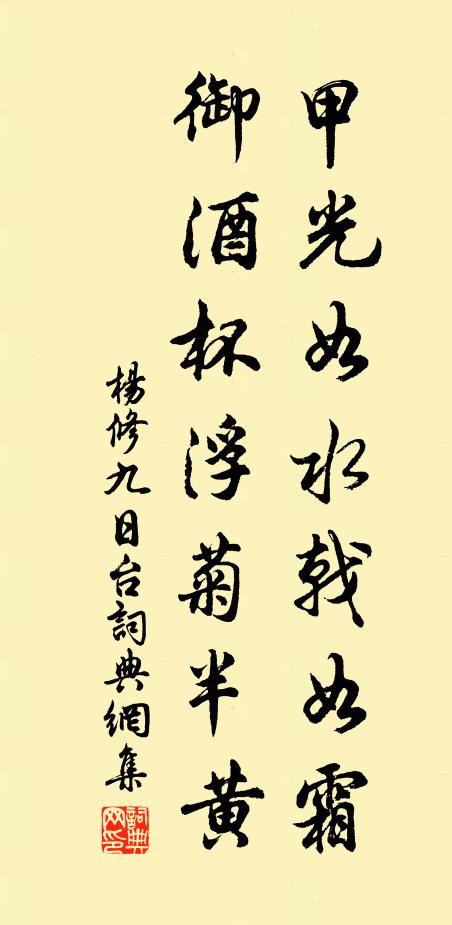 甲光如水戟如霜
御酒杯浮菊半黄
楊修九日台詞典網集
詞典網印